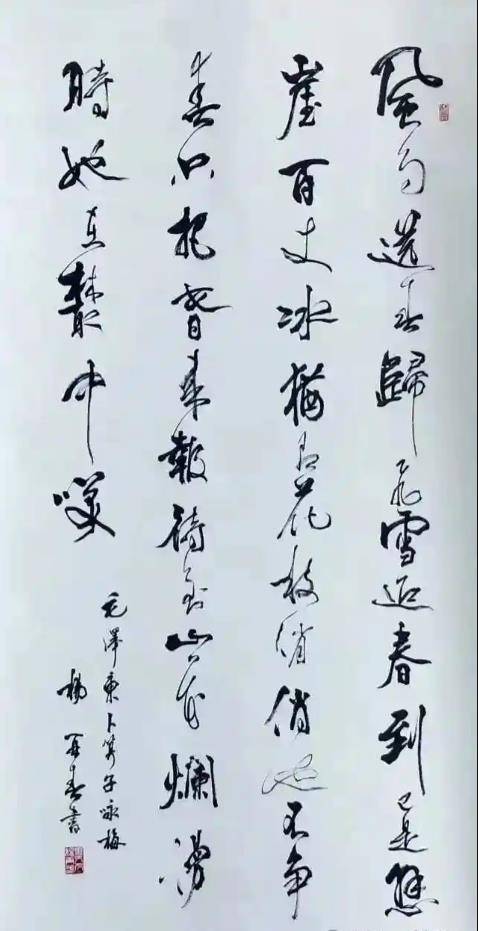 風雨送春歸飛雪迎春到已是懸
崖百丈冰猶有花枝俏俏也不争
春只把春來報待到山花爛漫
時她在叢中咲
毛澤東卜算子咏梅
楊 春書